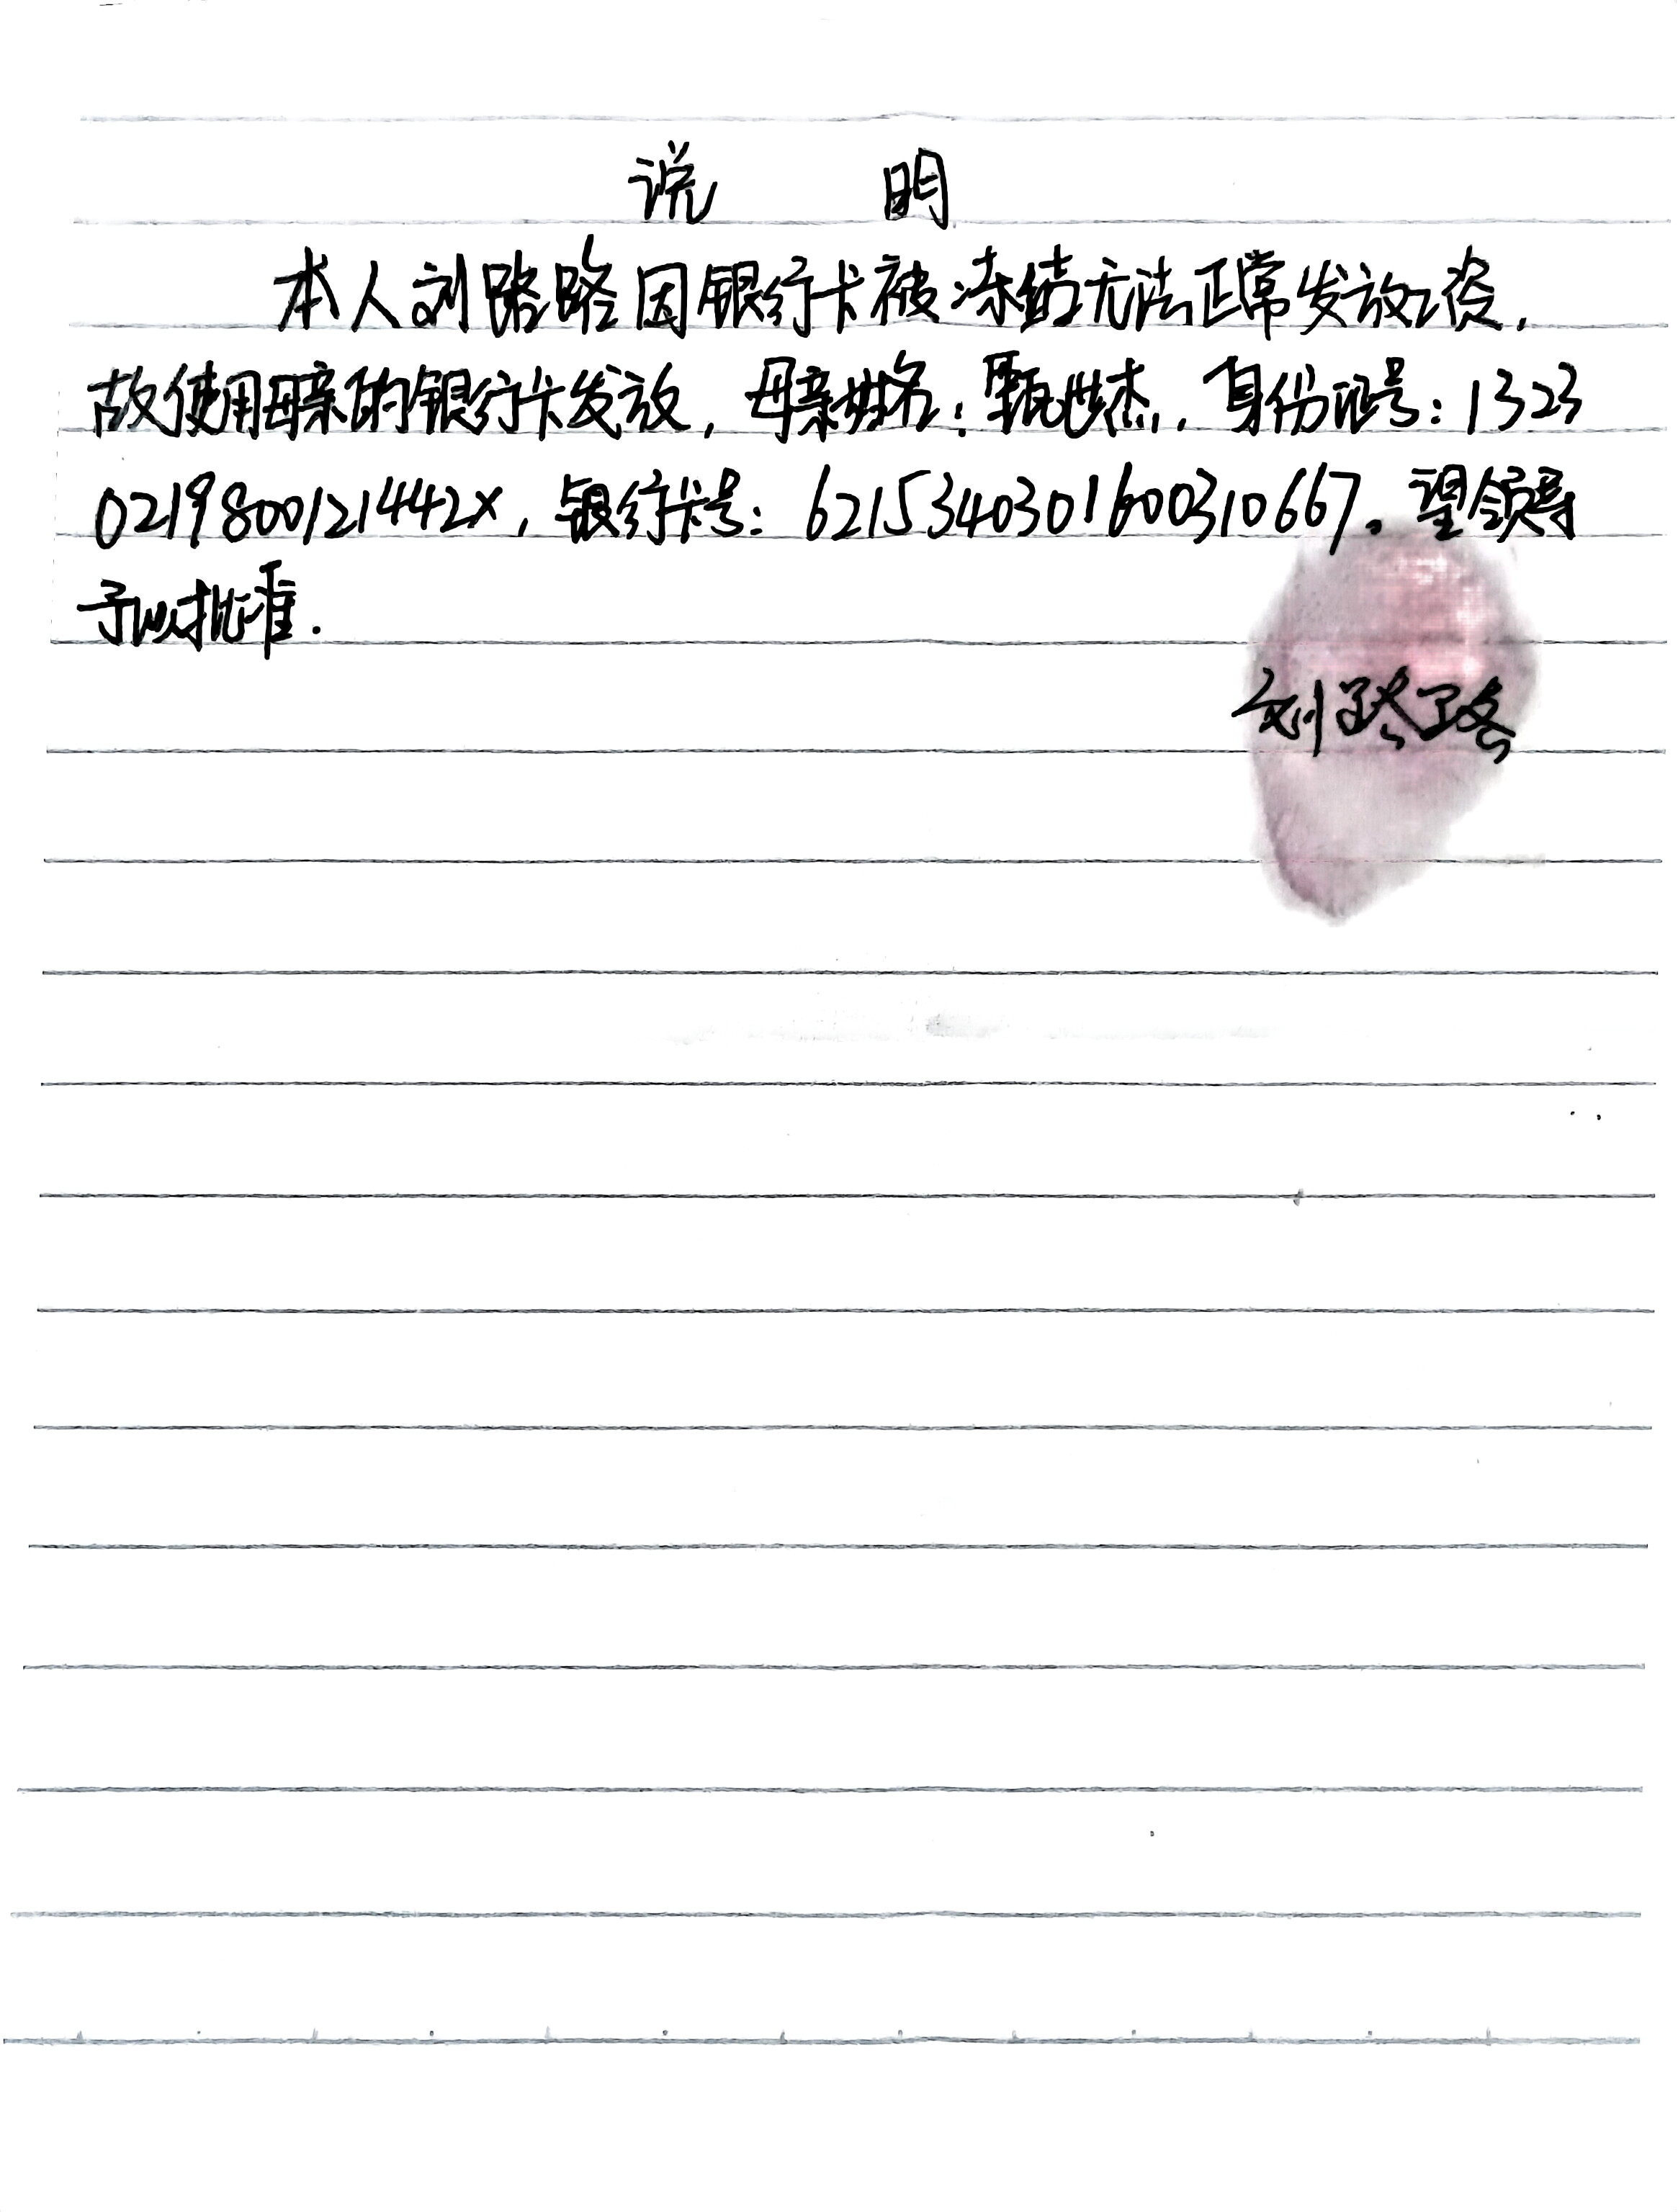 说 明
本人刘路路因银行卡被冻结无法正常发放工资,
故使用母亲的银行卡发放,母亲姓名:甄世杰,身份证号:1323
0219800121442x,银行卡号:6215340301600310667。望领导
予以批准.
刘路路